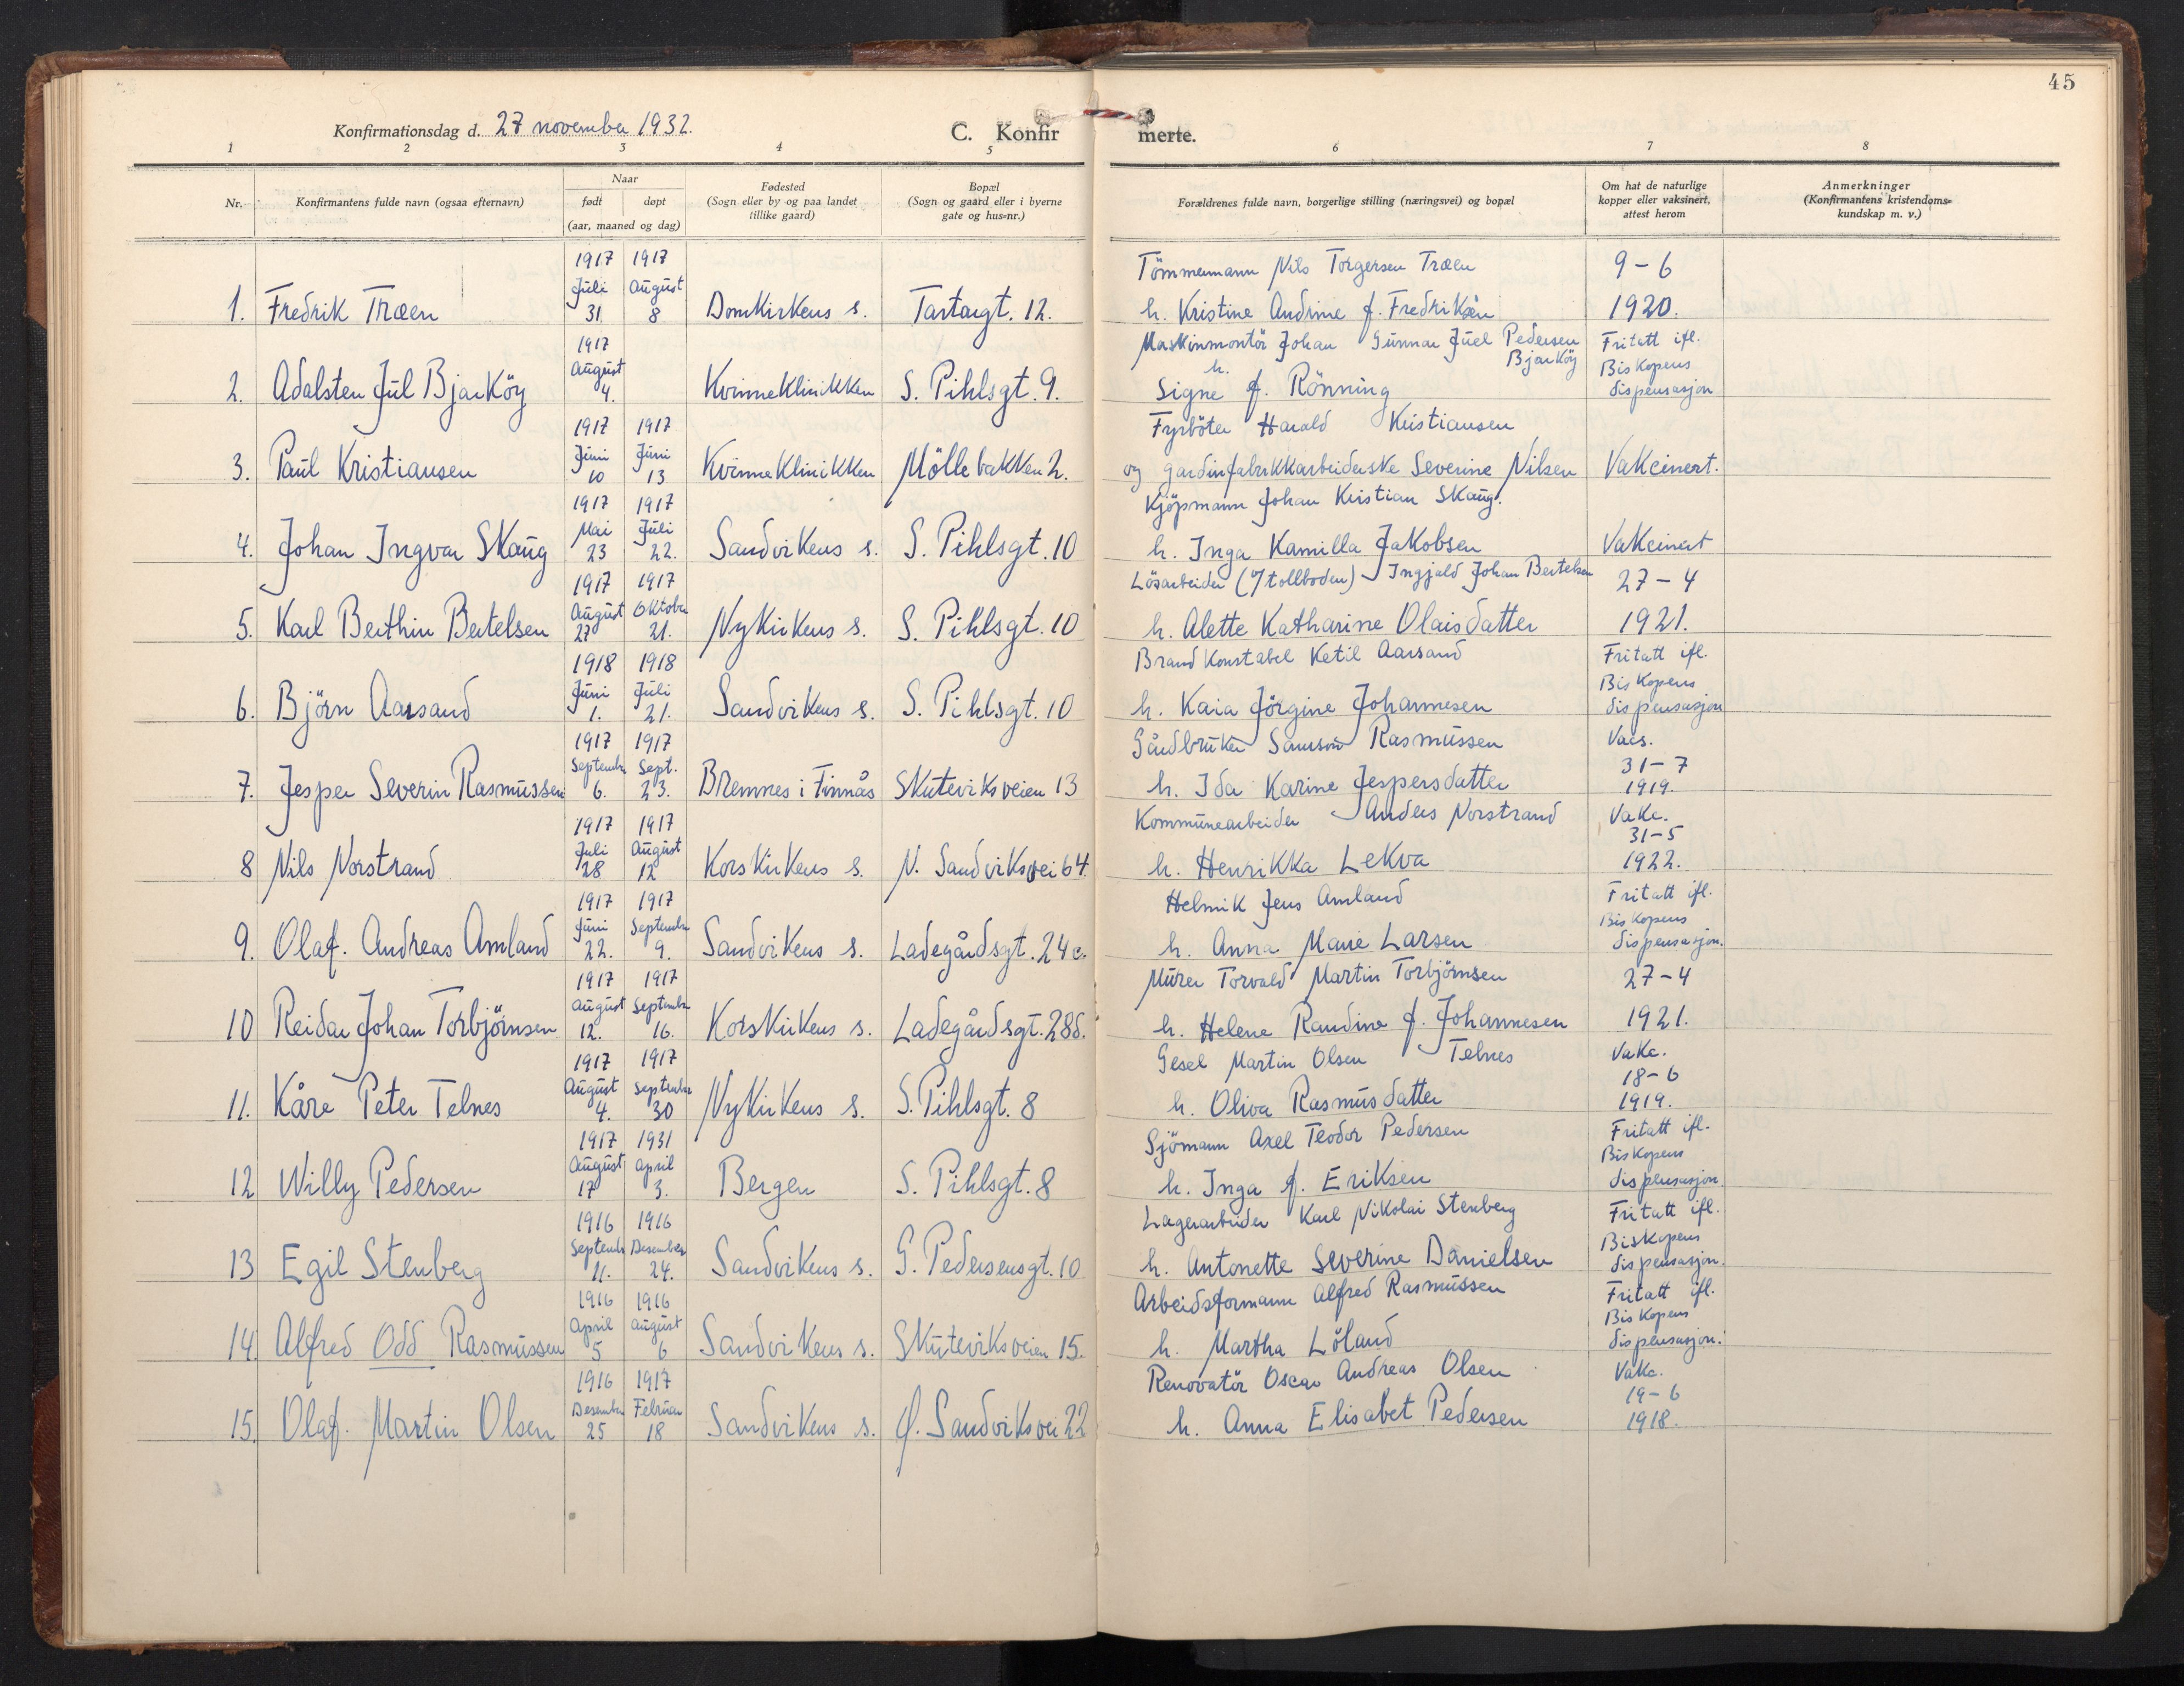 45
Konfirmationsdag d. 27 november 1932.
C. Konfirmerte.
1 2 3 4 5 6 7 8
Nr.
Konfirmantens fulde navn (ogsaa efternavn)
Naar
født døpt
(aar, maaned og dag)
Fødested
(Sogn eller by og paa landet
tillike gaard)
Bopæl
(Sogn og gaard eller i byerne
gate og hus-nr.)
Forældrenes fulde navn, borgerlige stilling (næringsvei) og bopæl
Om hat de naturlige
kopper eller vaksinert,
attest herom
Anmerkninger
(Konfirmantens kristendoms-
kundskap m. v.)
1917 1917 Tömmermann Nils Torgersen Træen 9-6
Juli August
1. Fredrik Træen 31 8 Domkirkens s. Tartargt. 12. h. Kristine Andrine f. Fredriksen 1920.
1917 Maskinmontör Johan Gunnar Juel Pedersen Fritatt ifl.
August Bjarköy Biskopens
2. Adalsten Jul Bjarköy 4. Kvinneklinikken S. Pihlsgt. 9. h. Signe f. Rönning dispensasjon
1917 1917 Fyrböter Harald Kristiansen
Juni Juni
3. Paul Kristiansen 10 13 Kvinneklinikken Möllebakken 2. og gardinfabrikkarbeiderske Severine Nilsen Vakcinert.
1917 1917 Kjöpmann Johan Kristian Skaug.
Mai Juli
4. Johan Ingvar Skaug 23 22. Sandvikens s. S. Pihlsgt. 10 h. Inga Kamilla Jakobsen Vakcinert
1917 1917 Lösarbeider (v/tollboden) Ingjald Johan Bertelsen 27-4
August Oktober
5. Karl Berthin Bertelsen 27 21. Nykirkens s. S. Pihlsgt. 10 h. Alette Katharine Olaisdatter 1921.
1918 1918 Brandkonstabel Ketil Aarsand Fritatt ifl.
Juni Juli Biskopens
6. Björn Aarsand 1. 21. Sandvikens s. S. Pihlsgt. 10 h. Kaia Jörgine Johannesen dispensasjon
1917 1917 Gårdbruker Samson Rasmussen Vacs.
September Sept. 31-7
7. Jesper Severin Rasmussen 6. 23. Bremnes i Finnås Skuteviksveien 13 h. Ida Karine Jespersdatter 1919.
1917 1917 Kommunearbeider Anders Norstrand Vakc.
Juli August 31-5
8 Nils Norstrand 28 12 Korskirkens s. N. Sandviksvei 64 h. Henrikka Lekva 1922.
1917 1917 Helmik Jens Amland Fritatt ifl.
Juni September Biskopens
9. Olaf. Andreas Amland 22. 9. Sandvikens s. Ladegårdsgt. 24 c. h. Anna Marie Larsen dispensasjon.
1917 1917 Murer Torvald Martin Torbjörnsen 27-4
August September
10 Reidar Johan Torbjörnsen 12. 16. Korskirkens s. Ladegårdsgt. 28d. h. Helene Randine f. Johannesen 1921.
1917 1917 Gesel Martin Olsen Telnes Vakc.
August September 18-6
11. Kåre Peter Telnes 4. 30 Nykirkens s. S. Pihlsgt. 8 h. Oliva Rasmusdatter 1919.
1917 1931 Sjömann Axel Teodor Pedersen Fritatt ifl.
August april Biskopens
12 Willy Pedersen 17 3. Bergen S. Pihlsgt. 8 h. Inga f. Eriksen dispensasjon.
1916 1916 Lagerarbeider Karl Nikolai Stenberg Fritatt ifl.
September Desember Biskopens
13 Egil Stenberg 11. 24. Sandvikens s. G. Pedersensgt. 10 h. Antonette Severine Danielsen dispensasjon.
1916 1916 Arbeidsformann Alfred Rasmussen Fritatt ifl.
April august Biskopens
14. Alfred Odd Rasmussen 5 6 Sandvikens s. Skuteviksveien 15. h. Martha Löland dispensasjon.
1916 1917 Renovatör Oscar Andreas Olsen Vakc.
Desember Februar 19-6
15. Olaf. Martin Olsen 25 18 Sandvikens s. Ø. Sandviksvei 22 h. Anna Elisabet Pedersen 1918.